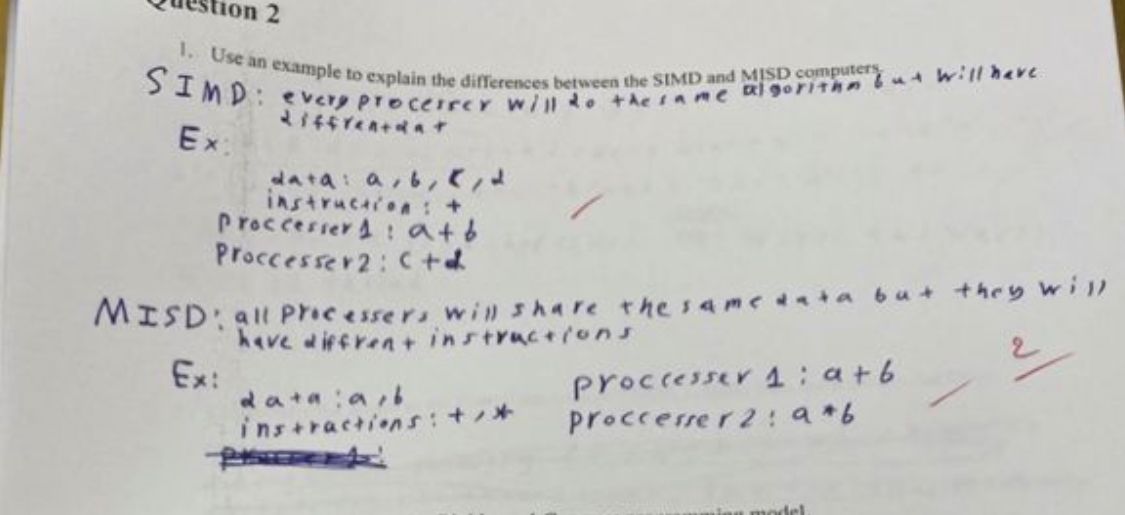 Question 2
1. Use an example to explain the differences between the SIMD and MISD computers.
SIMD: every processer will do the same algorithm but will have
diffrent dat
Ex:
data: a, b, c, d
instruction: +
proccesser 1: a+b
Proccesser 2: c+d
MISD: all processers will share the same data but they will
have diffrent instructions
Ex:
data: a, b
instractions: +, *
proccesser 1: a+b
proccesser 2: a*b
2
programming model